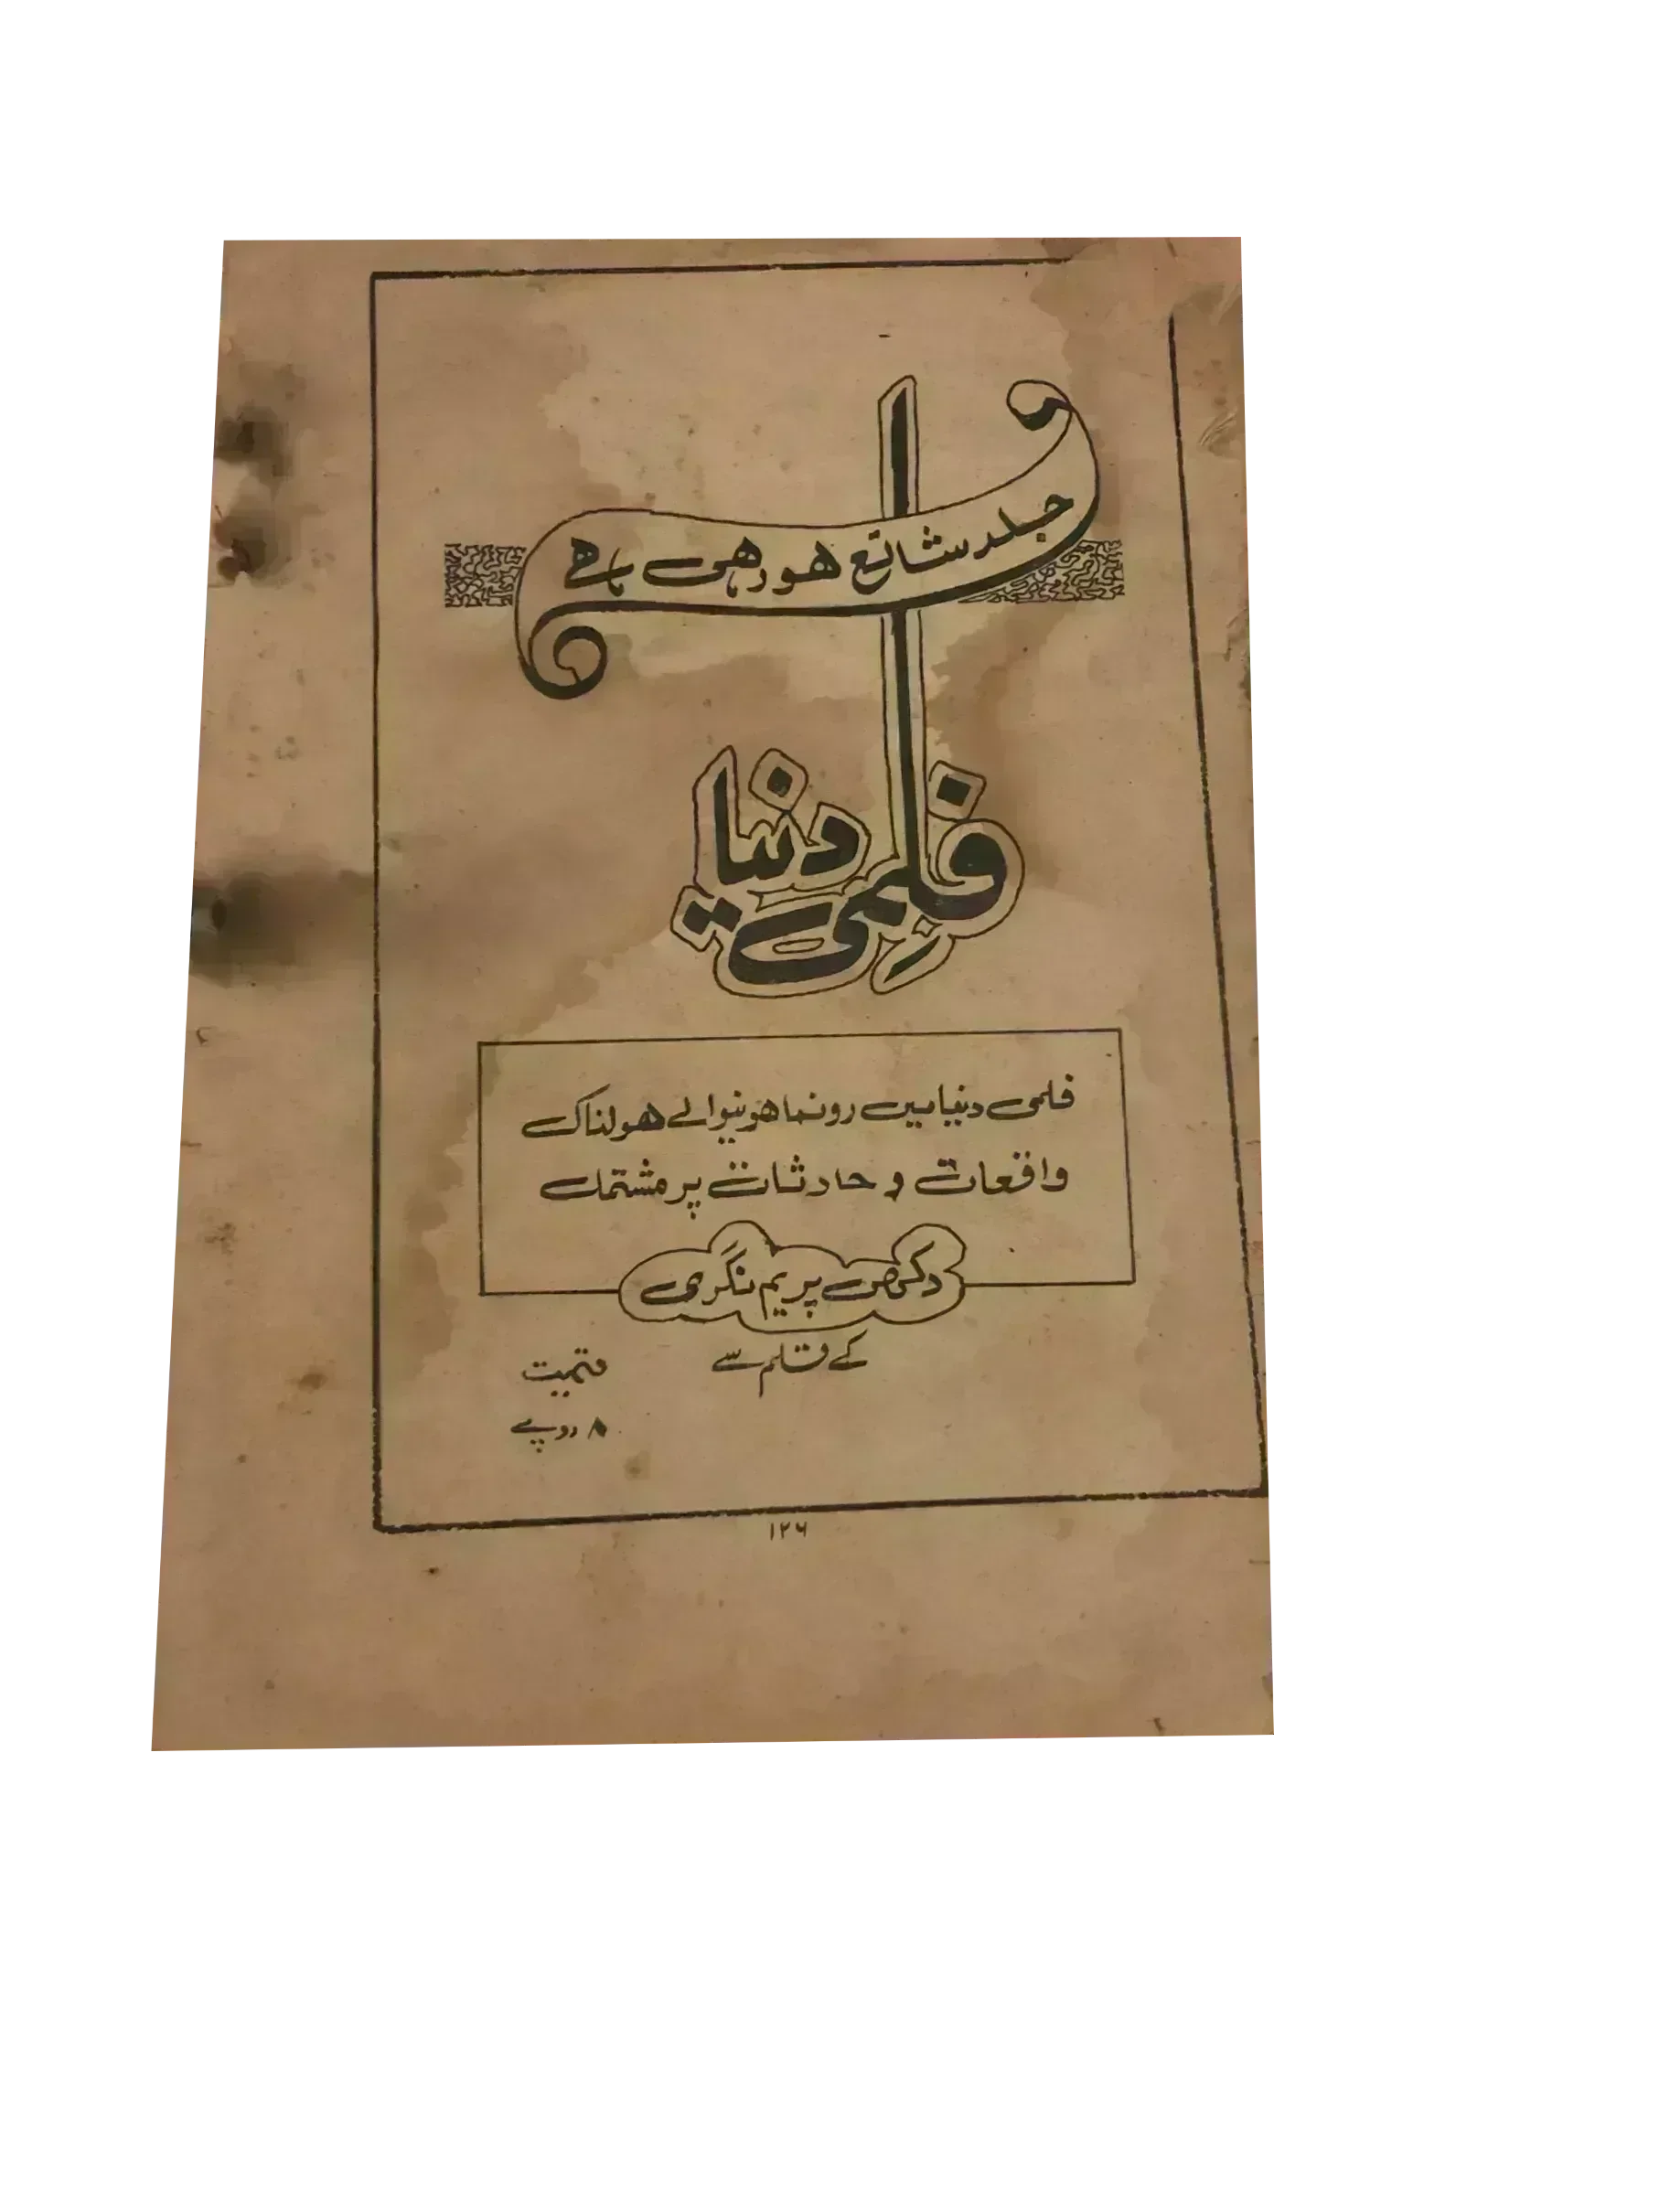 جلد شائع ہو رہی ہے
فلمی دنیا
فلمی دنیا میں رونما ہونیوالے ہولناک
واقعات و حادثات پر مشتمل
دکھی پریم نگری
کے قلم سے
قیمت
۸ روپے
۱۲۶